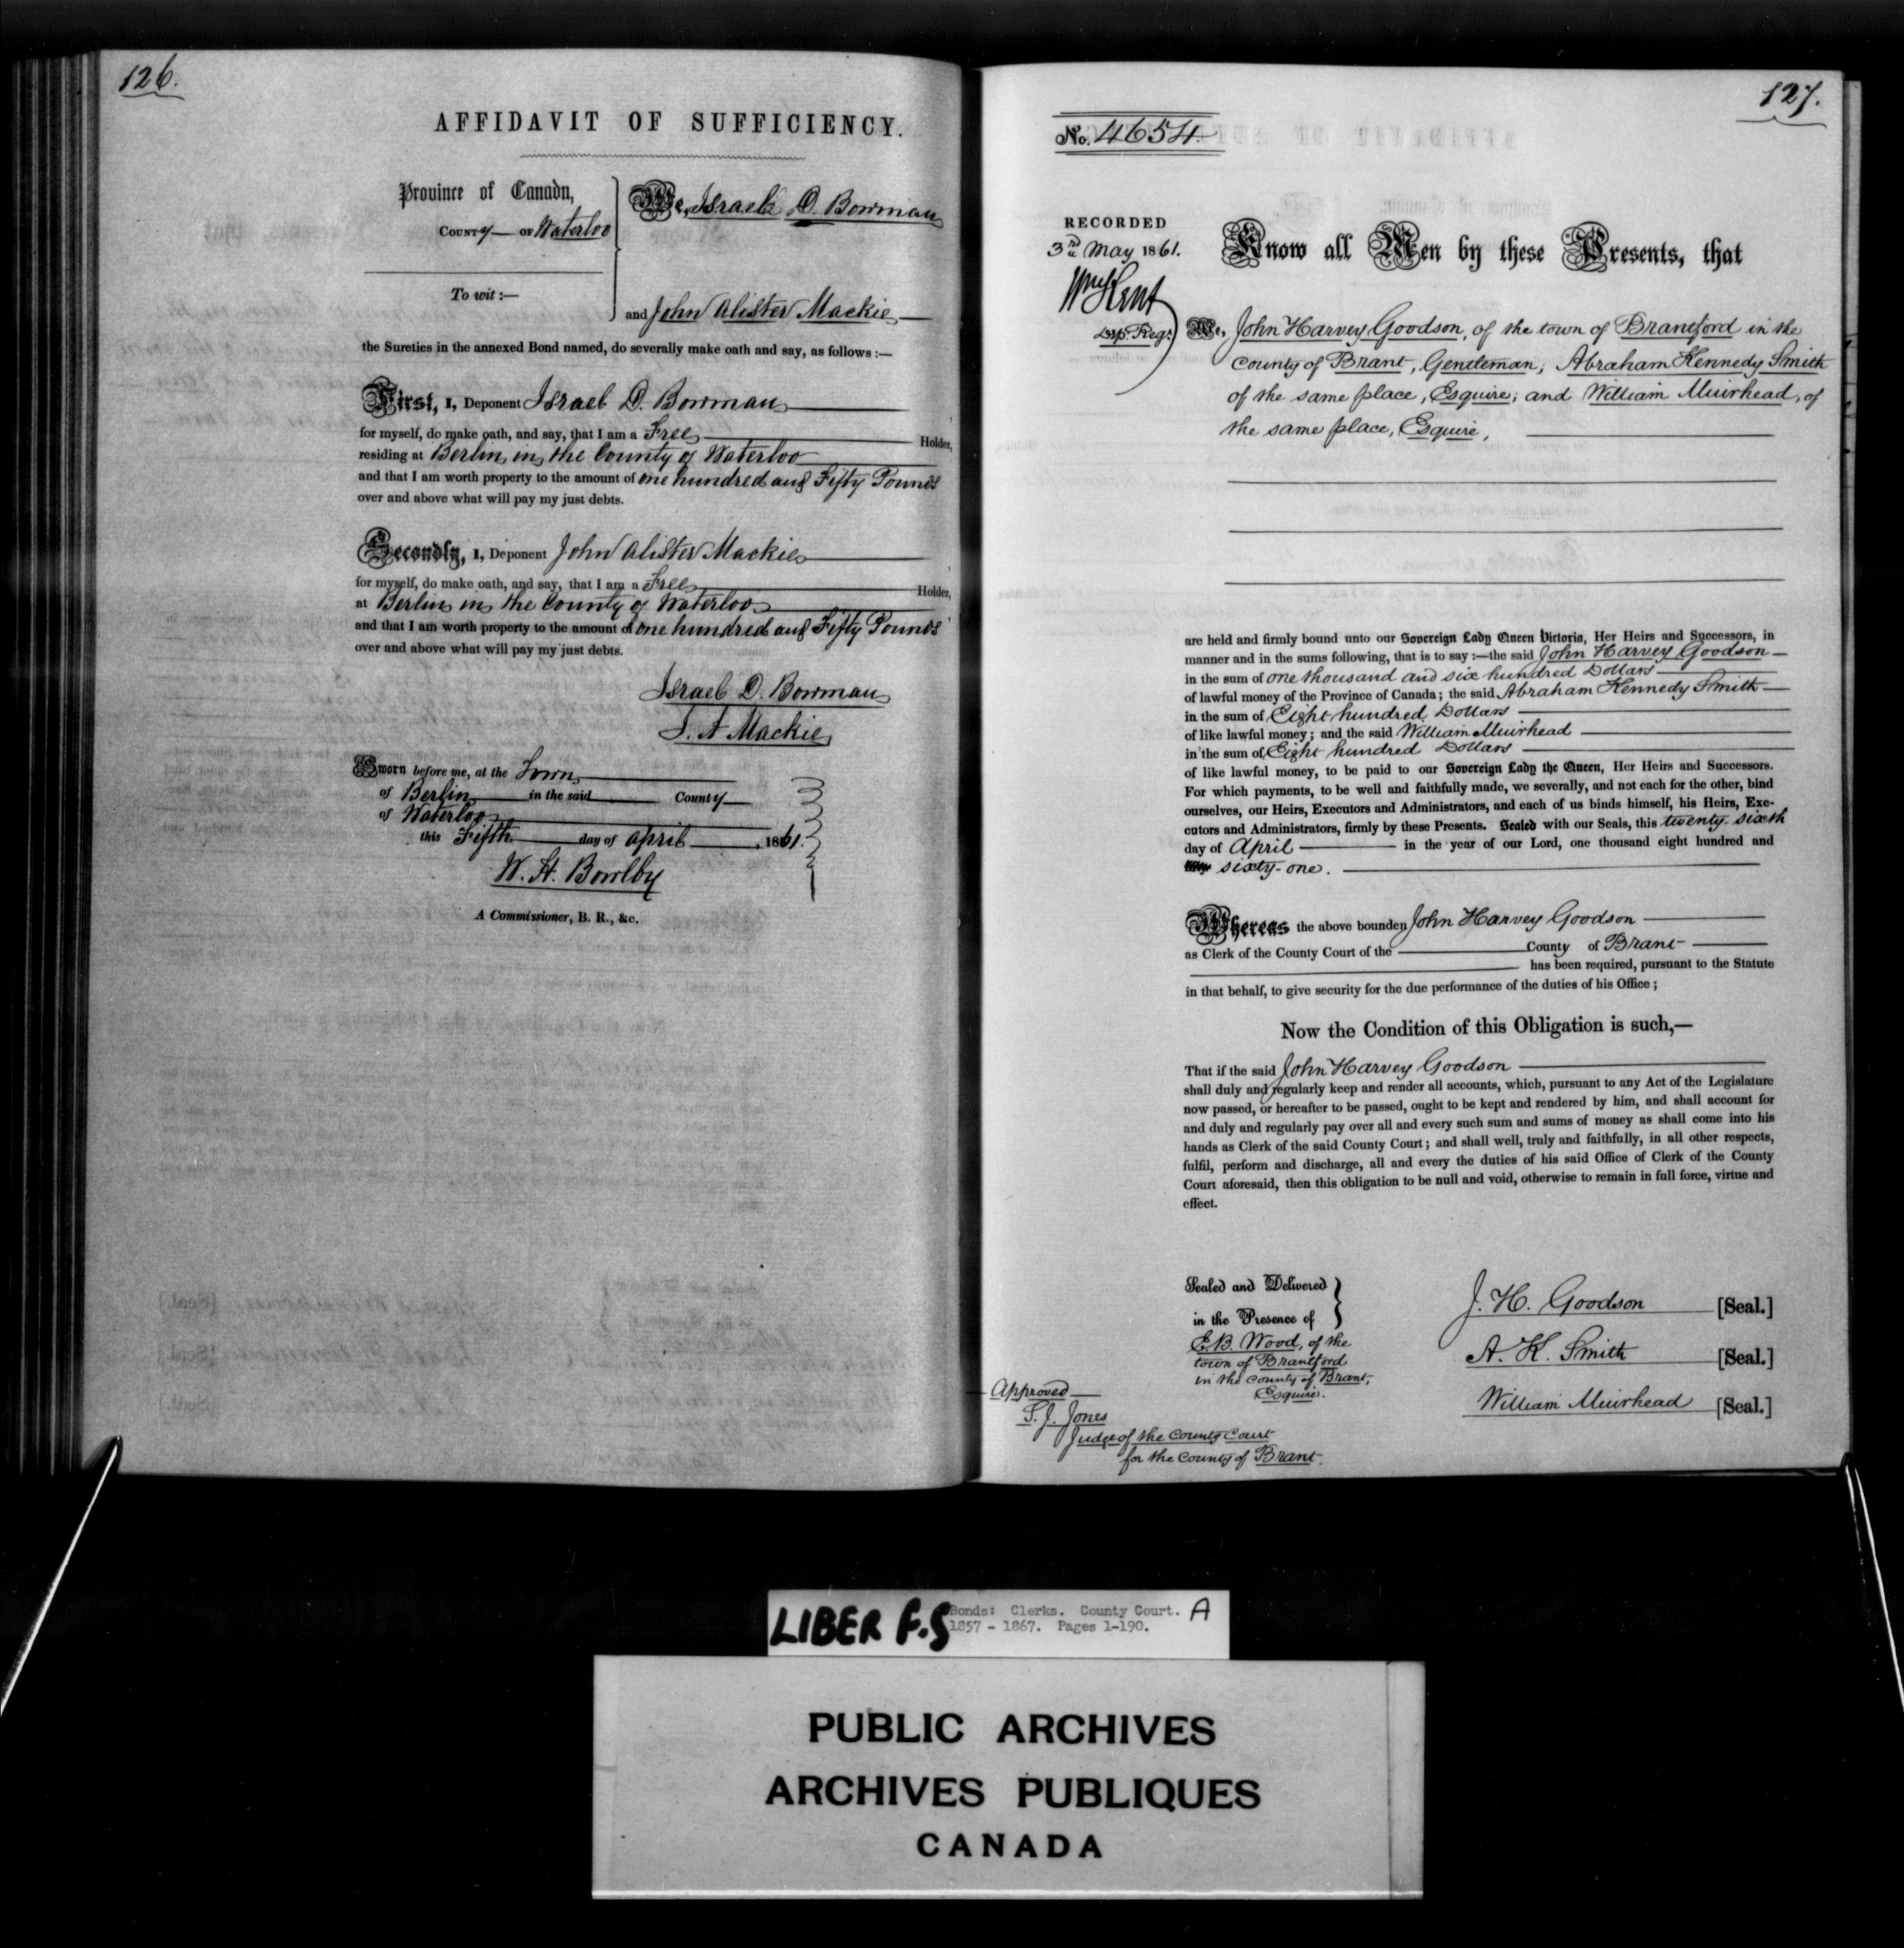 126.
AFFIDAVIT OF SUFFICIENCY.
Province of Canada,
COUNTY OF Waterloo
To wit:—
We, Israel D. Bowman
and John Alister Mackie
the Sureties in the annexed Bond named, do severally make oath and say, as follows:—
First, I, Deponent Israel D. Bowman
for myself, do make oath, and say, that I am a Free Holder,
residing at Berlin in the County of Waterloo
and that I am worth property to the amount of one hundred and Fifty Pounds
over and above what will pay my just debts.
Secondly, I, Deponent John Alister Mackie
for myself, do make oath, and say, that I am a Free Holder,
at Berlin in the County of Waterloo
and that I am worth property to the amount of one hundred and Fifty Pounds
over and above what will pay my just debts.
Israel D. Bowman
J. A Mackie
Sworn before me, at the Town
of Berlin in the said County
of Waterloo
this Fifth day of April, 1861.
W. H. Bowlby
A Commissioner, B. R., &c.
127.
No. 4654.
RECORDED
3rd May 1861.
Wm Kent
Dep. Regr.
Know all Men by these Presents, that
We, John Harvey Goodson, of the town of Brantford in the
County of Brant, Gentleman; Abraham Kennedy Smith
of the same place, Esquire; and William Muirhead, of
the same place, Esquire,
are held and firmly bound unto our Sovereign Lady Queen Victoria, Her Heirs and Successors, in
manner and in the sums following, that is to say:—the said John Harvey Goodson
in the sum of one thousand and six hundred Dollars
of lawful money of the Province of Canada; the said Abraham Kennedy Smith
in the sum of Eight hundred Dollars
of like lawful money; and the said William Muirhead
in the sum of Eight hundred Dollars
of like lawful money, to be paid to our Sovereign Lady the Queen, Her Heirs and Successors.
For which payments, to be well and faithfully made, we severally, and not each for the other, bind
ourselves, our Heirs, Executors and Administrators, and each of us binds himself, his Heirs, Exe-
cutors and Administrators, firmly by these Presents. Sealed with our Seals, this twenty-sixth
day of April in the year of our Lord, one thousand eight hundred and
sixty-one.
Whereas the above bounden John Harvey Goodson
as Clerk of the County Court of the County of Brant
has been required, pursuant to the Statute
in that behalf, to give security for the due performance of the duties of his Office;
Now the Condition of this Obligation is such,—
That if the said John Harvey Goodson
shall duly and regularly keep and render all accounts, which, pursuant to any Act of the Legislature
now passed, or hereafter to be passed, ought to be kept and rendered by him, and shall account for
and duly and regularly pay over all and every such sum and sums of money as shall come into his
hands as Clerk of the said County Court; and shall well, truly and faithfully, in all other respects,
fulfil, perform and discharge, all and every the duties of his said Office of Clerk of the County
Court aforesaid, then this obligation to be null and void, otherwise to remain in full force, virtue and
effect.
Sealed and Delivered
in the Presence of
E. B. Wood, of the
town of Brantford
in the County of Brant,
Esquire.
J. H. Goodson [Seal.]
A. K. Smith [Seal.]
William Muirhead [Seal.]
Approved
S. J. Jones
Judge of the County Court
for the County of Brant.
LIBER F.S
Bonds: Clerks. County Court. A
1857 - 1867. Pages 1-190.
PUBLIC ARCHIVES
ARCHIVES PUBLIQUES
CANADA